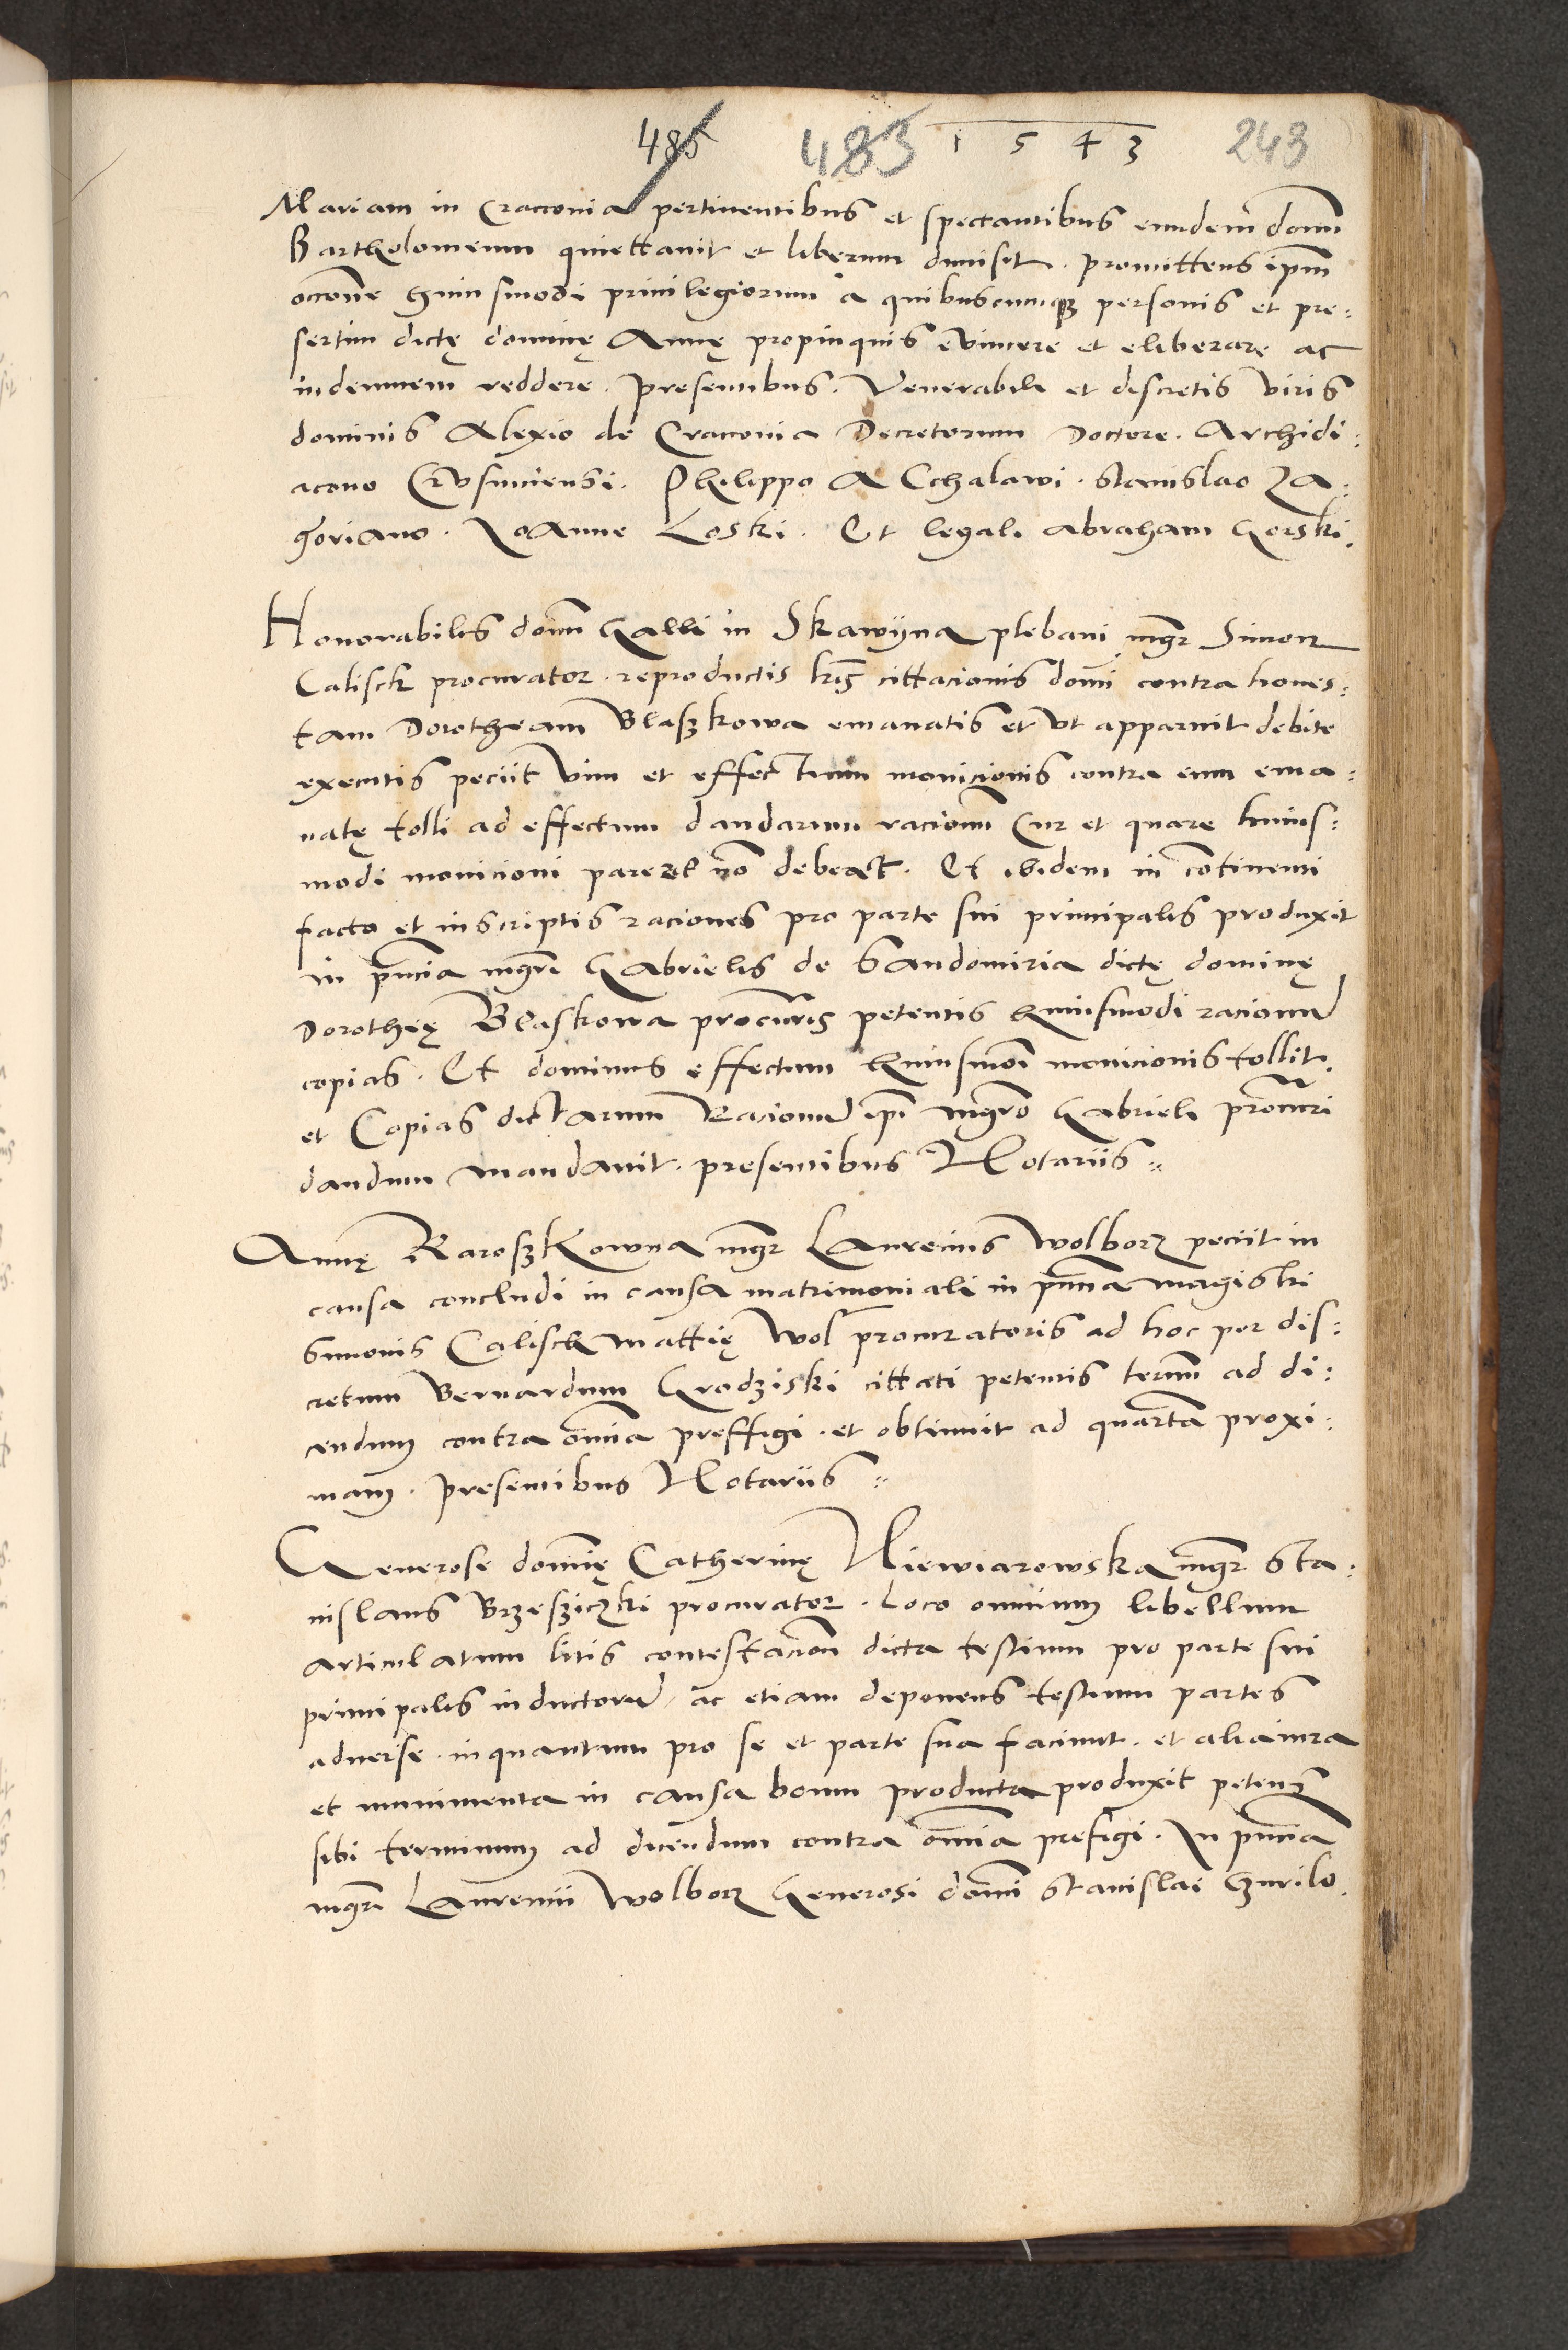 485 483 1543 243
Mariam in Cracovia pertinentibus et spectantibus eundem domĩ
Bartholomeum quiettavit et liberum dimisit. promittens ipm̃
occone huiusmodi privilegiorum a quibuscumque personis et pre:
sertim dictę dominę Annę propinquis evincere et eliberare ac
indemnem reddere. presentibus. Venerabili et discretis viris
dominis Alexio de Cracovia Decretorum Doctore. Archidi:
acono Crusvitiensi. Philippo A Cchalawi. Stanislao Za:
goriano. Joanne Loski. Et legali Abraham Gorski.
Honorabilis domĩ Galli in Skawÿna plebani mgr̃ Simon
Calisck procurator. reproductis lrĩs cittacionis domĩ contra hones:
tam Dorotheam Blaszkowa emanatis et ut apparuit debite
executis peciit vim et effectum monicionis contra eum ema:
natę tolli ad effectum dandarum racionũ Cur et quare huius:
modi monicioni parere nõ debeat. Et ibidem in continenti
facto et in scriptis raciones pro parte sui principalis produxit
in pñcia mgrĩ Gabrielis de Sandomiria dictę dominę
Dorotheę Blaskowa procuris petentis huiusmodi racionũ
copias. Et dominus effectum huiusmõi monicionis tollit.
et Copias dictarum Racionũ ipĩ mgrõ Gabrieli procuri
dandum mandavit. presentibus Notariis
Annę Karoszkowna mgr̃ Laurencius Wolborz peciit in
causa concludi in causa matrimoniali in pñcia magistri
Simonis Calisck Mattię Wol procuratoris ad hoc per dis:
cretum Bernardum Grodziski cittati petentis termĩ ad di:
cendum contra om̃ia preffigi. et obtinuit ad quartã proxi:
mam. presentibus Notariis
Generose domĩę Catherinę Niewiarowska mgr̃ Sta:
nislaus Brzeziczki procurator. Loco omnium libellum
articulatum litis contestacionẽ dicta testium pro parte sui
principalis inductorũ, ac etiam deponens testium partes
adverse. inquantum pro se et parte sua faciunt. et alia iura
et munimenta in causa bonum producta produxit petens
sibi terminum ad dicendum contra om̃ia prefigi. In pñcia
mgrĩ Laurencii Wolborz Generosi domĩ Stanislai Czurilo.